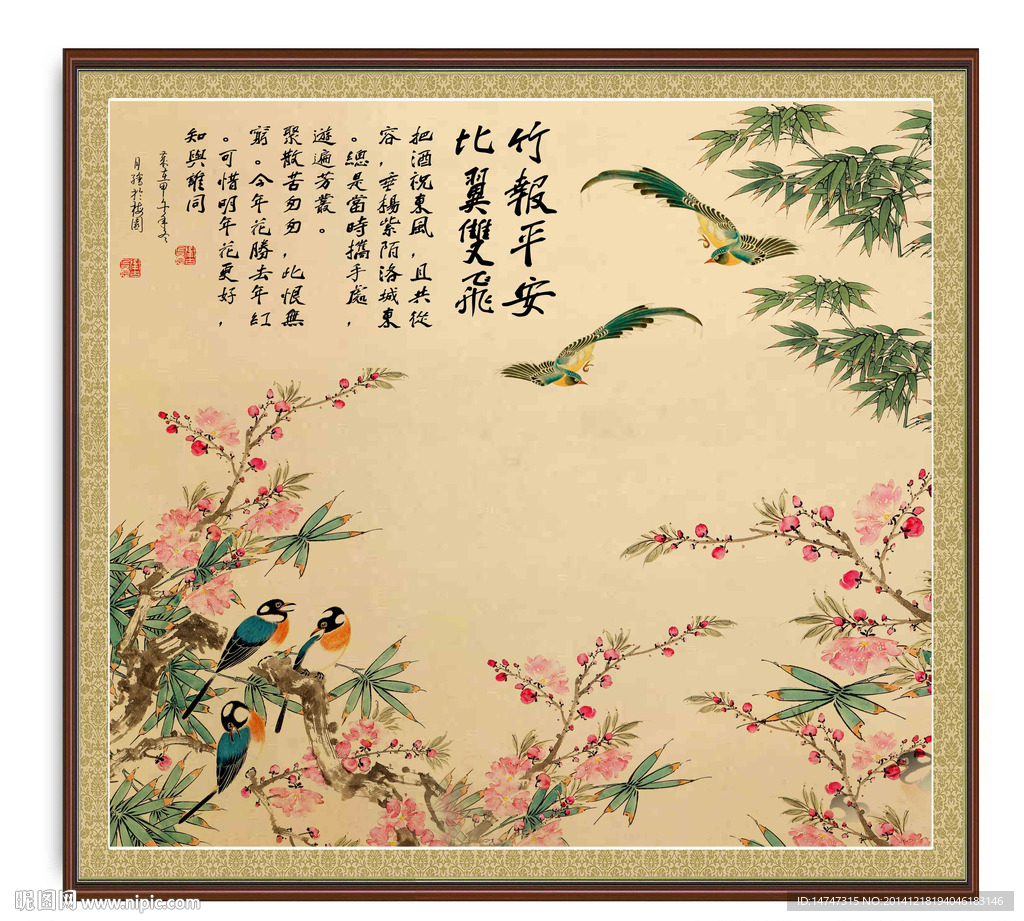 竹報平安
比翼雙飛
把酒祝東風,且共從
容,垂楊紫陌洛城東
。總是當時攜手處,
遊遍芳叢。
聚散苦匆匆,此恨無
窮。今年花勝去年紅
。可惜明年花更好,
知與誰同
歲在甲午年冬
月繪於梅園
昵图网 www.nipic.com
ID:14747315 NO:20141218194046183146